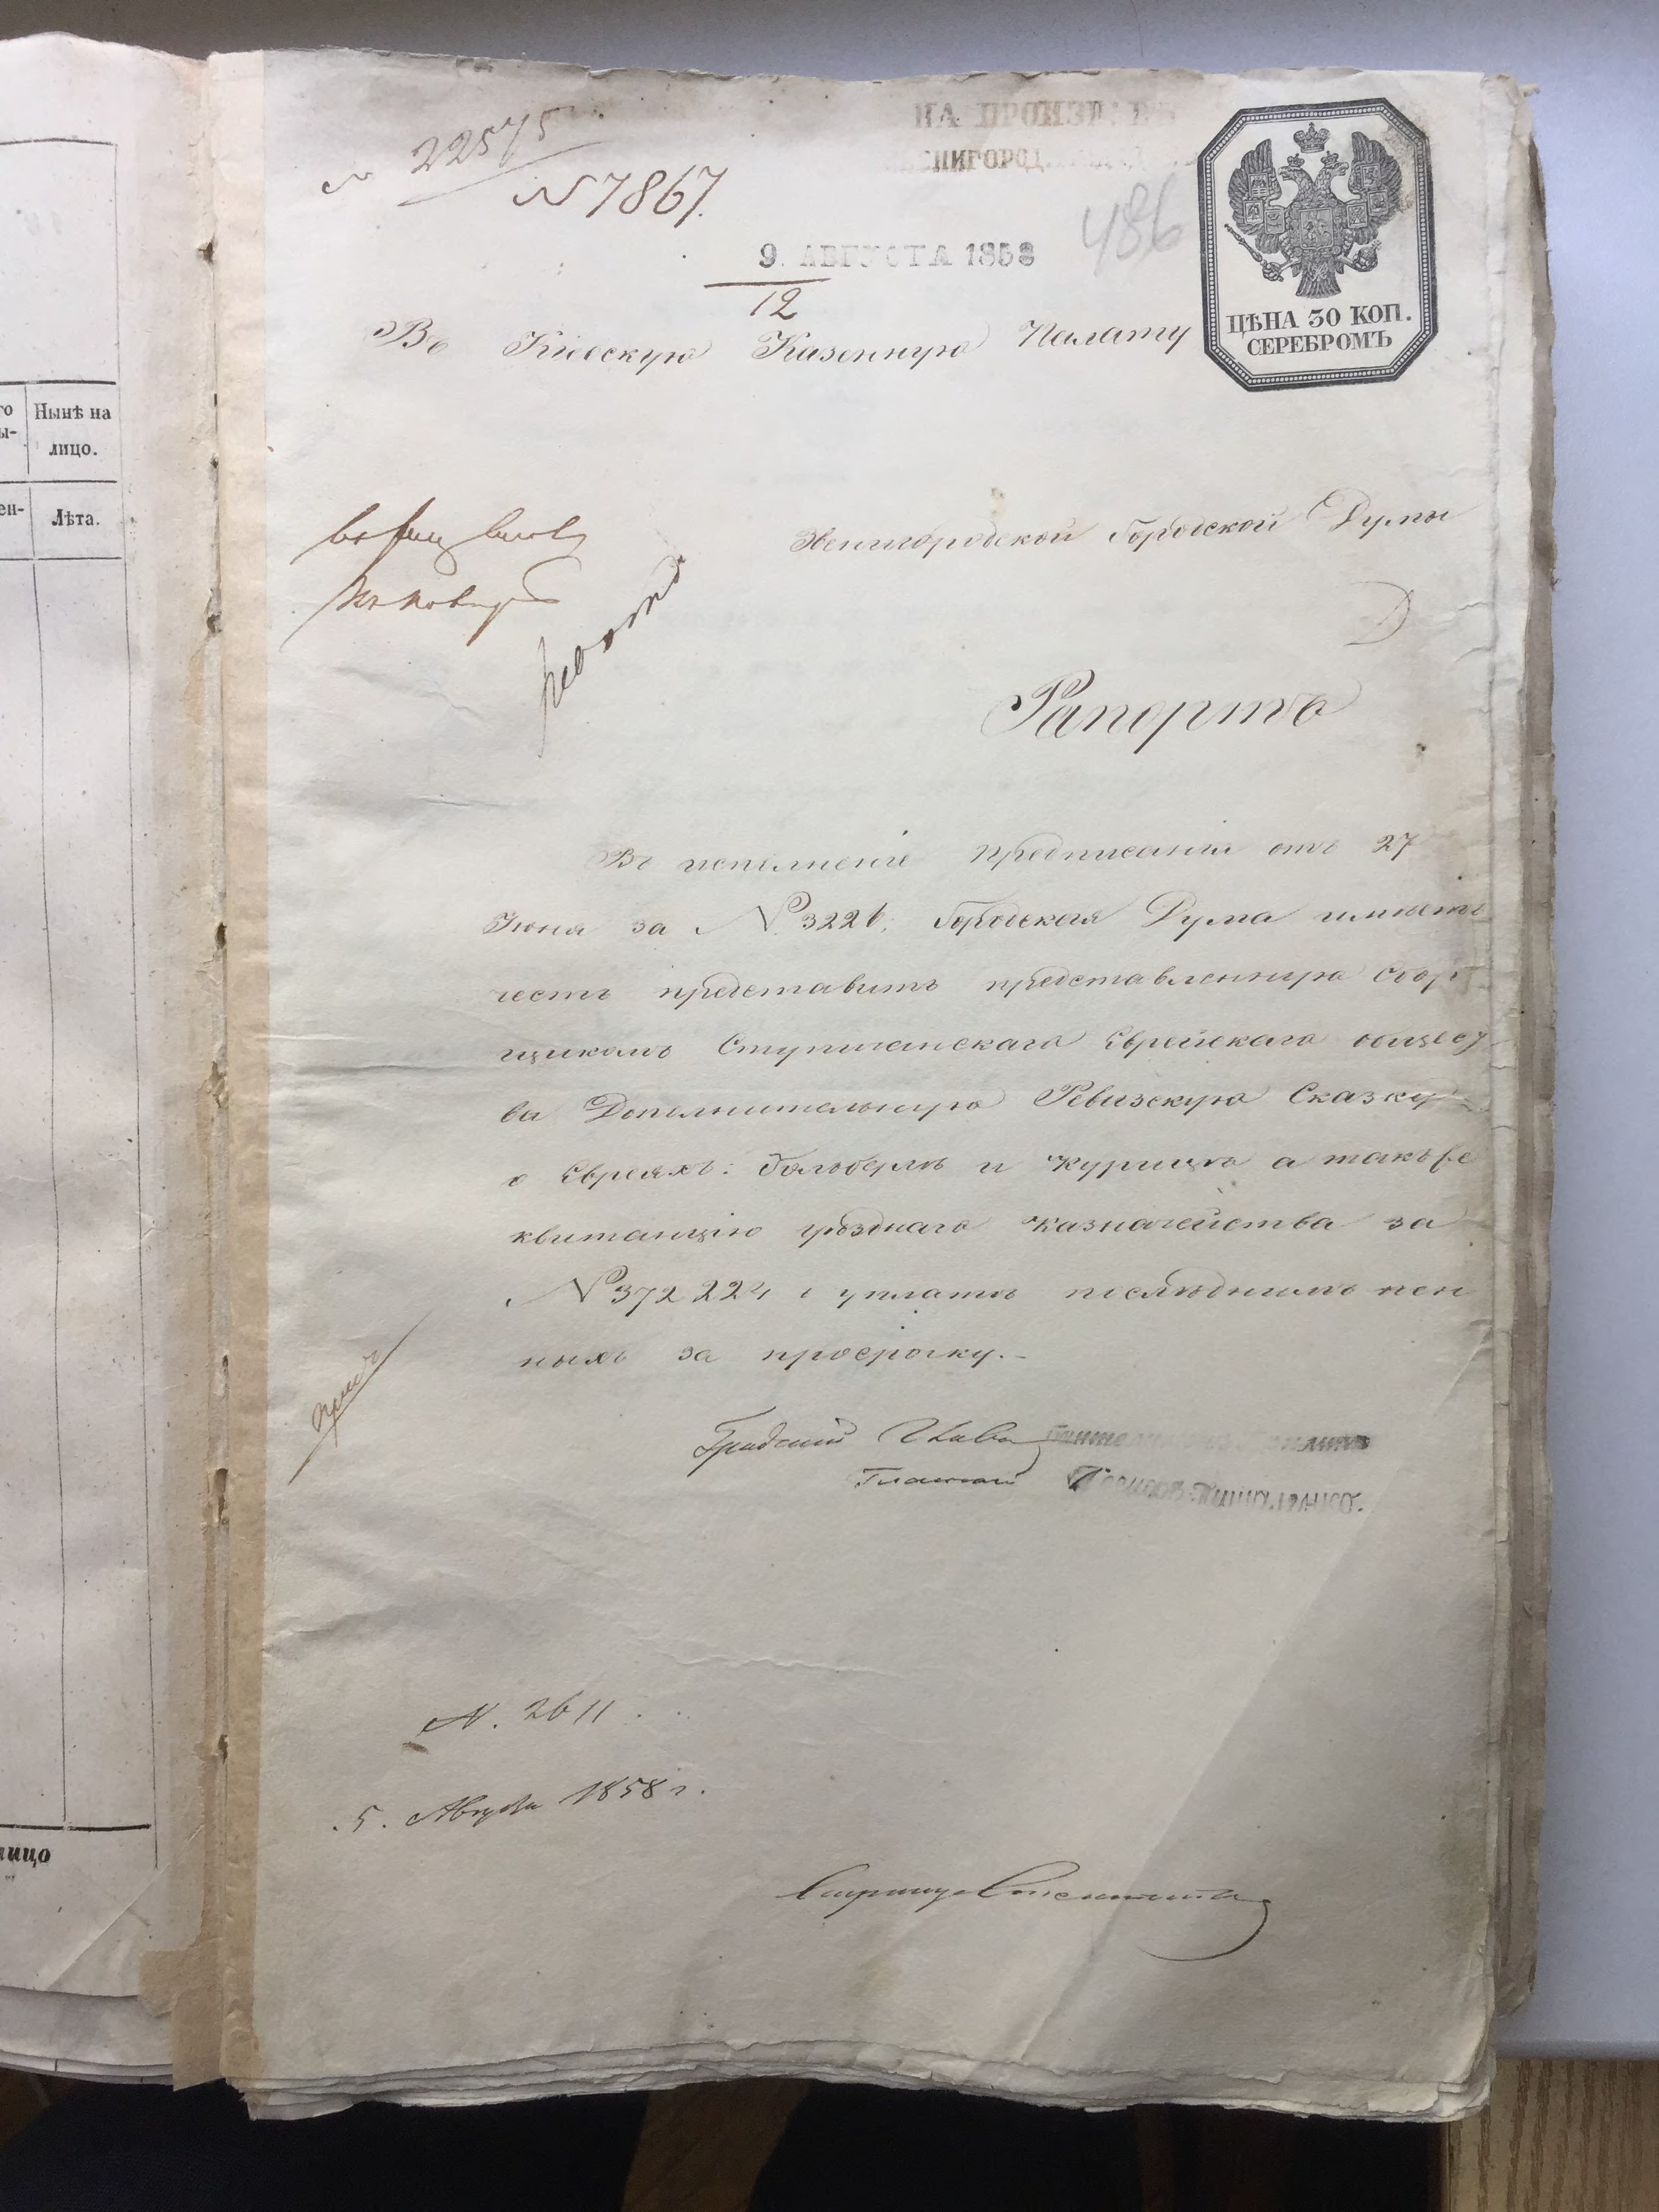 № 22575
№ 7867.
НА ПРОИЗВ
ЕНИГОРОД
486
9. АВГУСТА 1858
12
ЦѢНА 30 КОП.
СЕРЕБРОМЪ
Въ Кіевскую Казенную Палату
Звенигородской Городской Думы
Рапортъ
Въ исполненіе предписанія отъ 27
Іюня за № 3226, Городская Дума имѣетъ
честь представить представленную Сбор
щикомъ Ступичанскаго Еврейскаго общест
ва Дополнительную Ревизскую Сказку
о Евреяхъ: Гольберъ и Курицъ а такъже
квитанцію уѣзднаго казначейства за
№ 372224 о уплатѣ послѣднимъ пен
ныхъ за просрочку.-
Градский Глава
Гласный
№. 2611
5. Августа 1858 г.
го
ы-
Нынѣ на
лицо.
ен-
Лѣта.
лицо